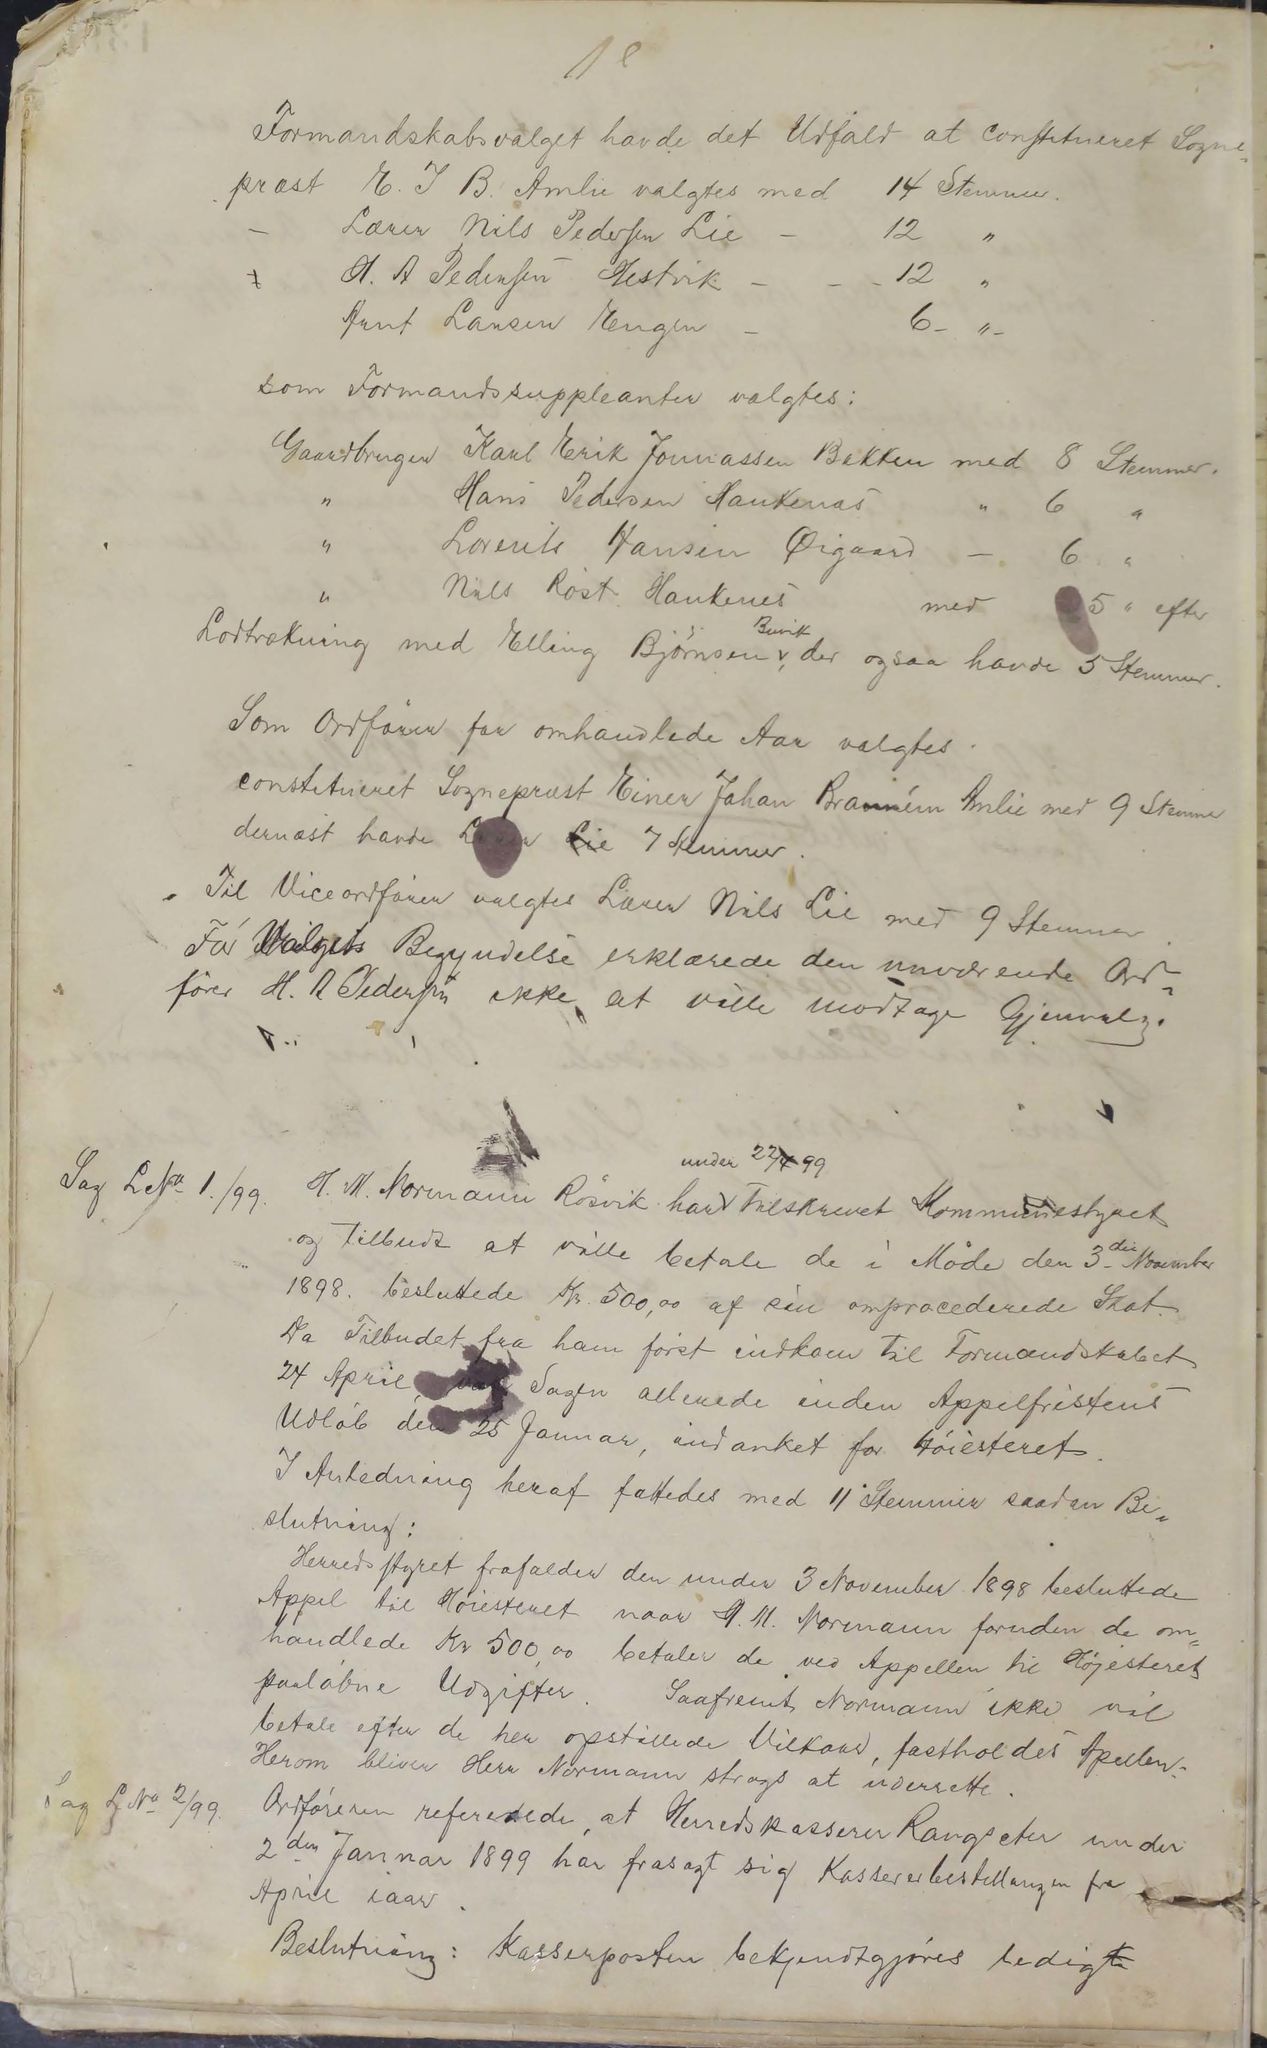 Formandskabsvalget havde det Udfald at constitueret Sogne-
præst E. J B. Amlie valgtes med 14 Stemmer.
- Lærer Nils Pedersen Lie - 12 "
H. A Pedersen Hestvik - - - 12 "
Arnt Larsen Engen - 6 - " -
som Formandssuppleanter valgtes:
Gaardbruger Karl Erik Jonnassen Bakken med 8 Stemmer.
" Hans Pedersen Haukenæs " 6 "
" Lorents Hansen Øigaard - 6 "
" Nils Røst Haukenes med 5 " efter
Lodtrækning med Elling Björnsen Buvik, der ogsaa havde 5 Stemmer.
Som Ordförer for omhandlede Aar valgtes
constitueret Sognepræst Einer Johan Amlie med 9 Stemmer
dernæst havde Lærer Lie 7 Stemmer.
Til Viceordförer valgtes Lærer Nils Lie med 9 Stemmer
För Valgets Begyndelse erklærede den nuværende Ord-
förer H. A Pedersen ikke at ville modtage Gjenvalg.
under 22/4 99
Sag L No 1./99. H. M. Normann Rösvik har tilskrevet Kommunestyret
og tilbudt at ville betale de i Möde den 3die November
1898. besluttede Kr. 500,00 af sin omprocederede Skat.
Da Tilbudet fra ham först indkom til Formandskabet
24 April, var Sagen allerede inden Appelfristens
Udlöb den 25 Januar, indanket for Höiesteret.
I Anledning heraf fattedes med 11 Stemmer saadan Be-
slutning:
Herredsstyret frafalder den under 3 November 1898 besluttede
Appel til Höiesteret naar H. M. Normann foruden de om-
handlede Kr 500,00 betaler de ved Appellen til Höjesteret
paaløbne Udgifter. Saafremt Normann ikke vil
betale efter de her opstillede Vilkaar, fastholdes Apellen.
Herom bliver Herr Normann strags at underrette.
Sag L No 2/99. Ordföreren refererede, at Herredskasserer Rangseter under
2den Januar 1899 har frasagt sig Kassererbestillingen fra
April iaar.
Beslutning: Kasserposten bekjendtgjöres ledig